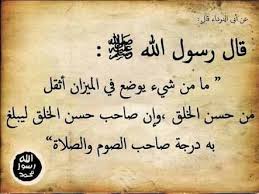 عن أبي الدرداء قال:
قال رسول الله ﷺ :
” ما من شيء يوضع في الميزان أثقل
من حسن الخلق ،وإن صاحب حسن الخلق ليبلغ
به درجة صاحب الصوم والصلاة“
الله
رسول
محمد